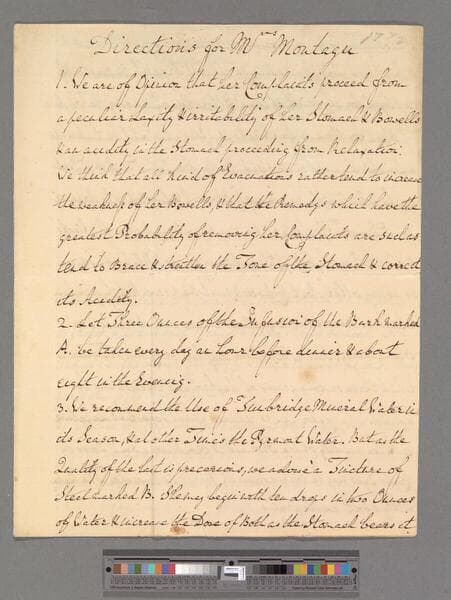 Directions for Mrs Montagu
1. We are of Opinion that her Complaints proceed from
a peculier Laxity & irritability of her Stomach & Bowells
& an acidity in the Stomach proceeding from Relaxation.
We think that all kind of Evacuations rather tend to increase
the weakness of her Bowells, & that the Remedys which have the
greatest Probability of removing her Complaints are such as
tend to Brace & strengthen the Tone of the Stomach & correct
its Acidity.
2. Let Three Ounces of the Infusion of the Bark marked
A. be taken every day an hour before dinner & about
eight in the Evening.
3. We recommend the Use of Tunbridge Mineral Water in
its Season, & at other Times the Pyrmont Water. But as the
Quality of the last is precarious, we advise a Tincture of
Steel marked B. She may begin with ten drops in two Ounces
of Water & increase the Dose of Both as the Stomach bears it